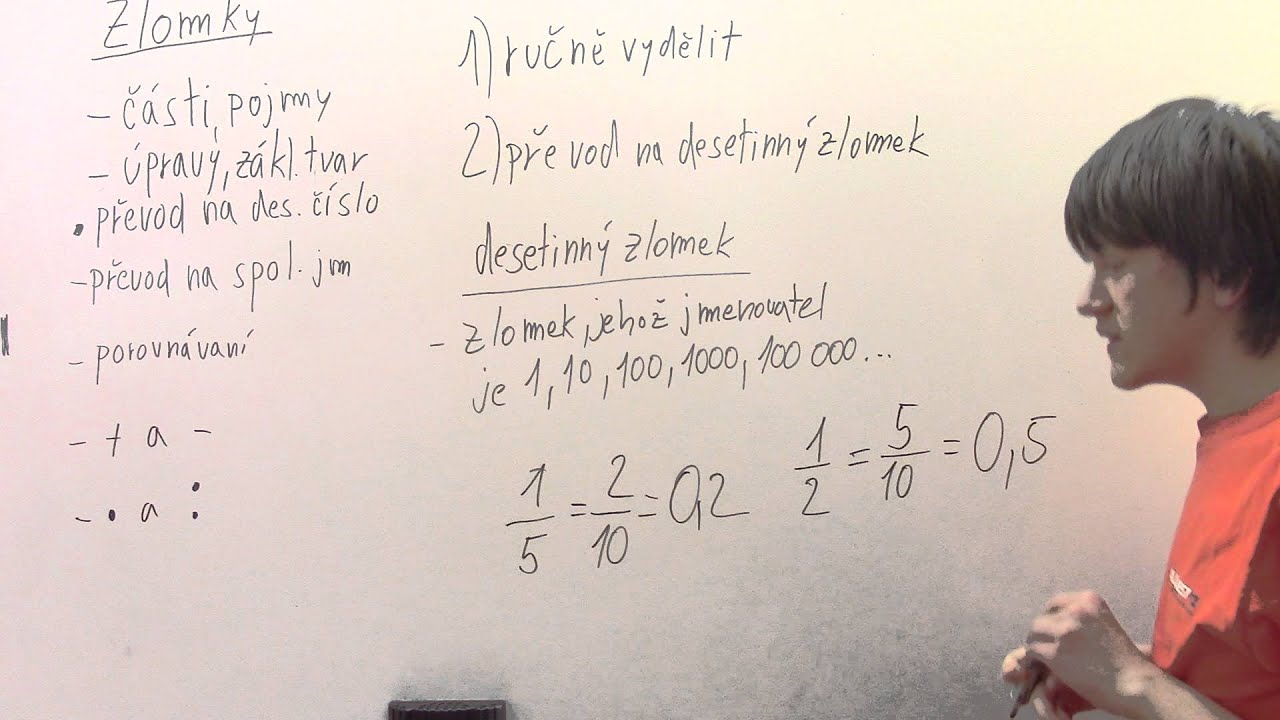 Zlomky
- části, pojmy
- úpravy, zákl. tvar
• převod na des. číslo
- převod na spol. jm
- porovnávaní
- + a -
- • a :
1) ručně vydělit
2) převod na desetinný zlomek
desetinný zlomek
- zlomek, jehož jmenovatel
je 1, 10, 100, 1000, 100 000...
1/5 = 2/10 = 0,2
1/2 = 5/10 = 0,5